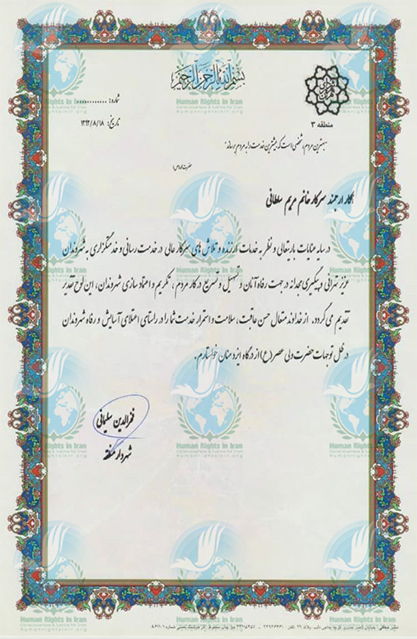 بسم الله الرحمن الرحیم
شماره: ............
تاریخ:
منطقه ۳
"بهترین مردم، شخصی است که بیشترین خدمت را به مردم برساند"
همکار ارجمند سرکار خانم مریم سلطانی
در سایه عنایات باریتعالی و نظر به خدمات ارزنده و تلاش های سرکار عالی در خدمت رسانی و خدمتگزاری به شهروندان
عزیز تهرانی و پیگیری مجدانه در جهت رفاه آنان و تسهیل و تسریع در کار مردم، تکریم و اعتمادسازی شهروندان، این لوح تقدیر
تقدیم می گردد. از خداوند متعال حسن عاقبت، سلامت و استمرار خدمت شما را در راستای اعتلای آسایش و رفاه شهروندان
در ظل توجهات حضرت ولی عصر (عج) از درگاه ایزد منان خواستارم.
فخرالدین سلیمانی
شهردار منطقه
Human Rights in Iran